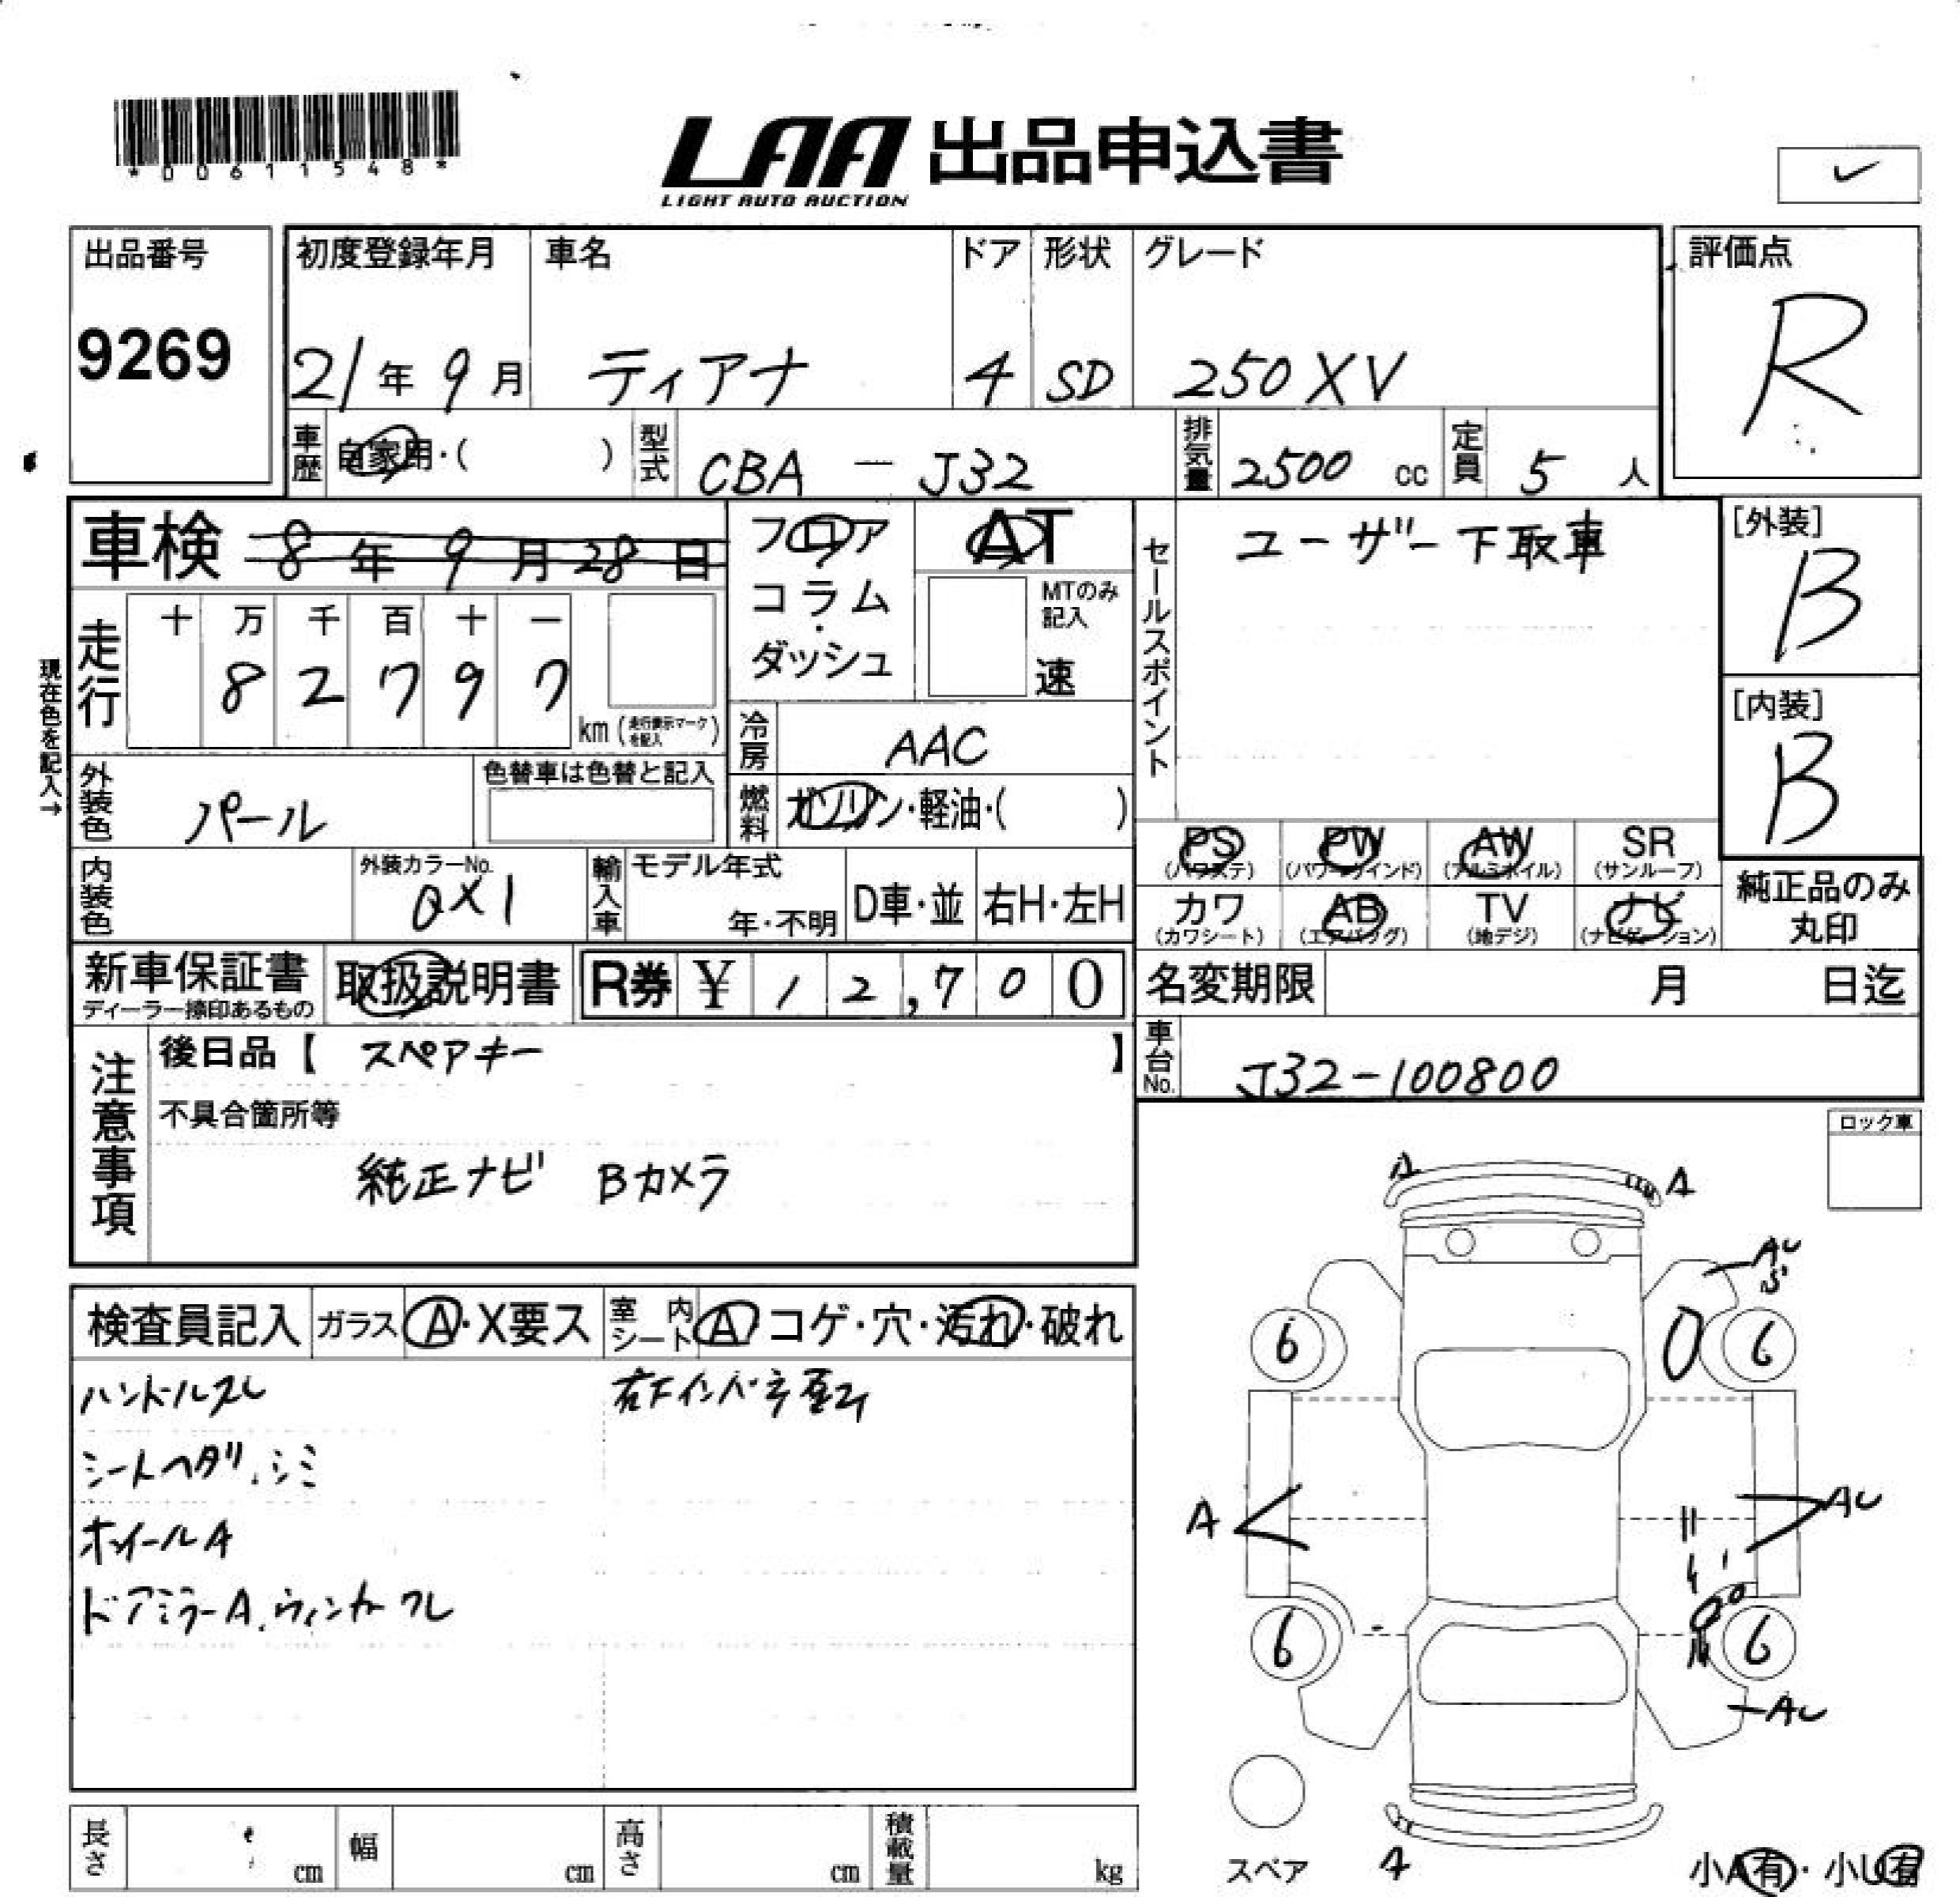 *00611548*
LAA 出品申込書
LIGHT AUTO AUCTION
✓
出品番号
9269
初度登録年月
21年9月
車名
ティアナ
ドア
4
形状
SD
グレード
250XV
評価点
R
車歴
自家用・( )
型式
CBA - J32
排気量
2500 cc
定員
5 人
車検 8年9月28日
フロア
コラム
・
ダッシュ
AT
MTのみ
記入
速
セールスポイント
ユーザー下取車
[外装]
B
[内装]
B
現在色を記入→
走行
十 万 千 百 十 一
8 2 7 9 7
km (走行表示マークを記入)
冷房
AAC
燃料
ガソリン・軽油・( )
外装色
パール
色替車は色替と記入
PS
(パワステ)
PW
(パワーウインド)
AW
(アルミホイル)
SR
(サンルーフ)
カワ
(カワシート)
AB
(エアバッグ)
TV
(地デジ)
ナビ
(ナビゲーション)
純正品のみ
丸印
内装色
外装カラーNo.
QX1
輸入車
モデル年式
年・不明
D車・並
右H・左H
新車保証書
ディーラー捺印あるもの
取扱説明書
R券 ¥ 12,700
名変期限
月 日迄
車台No.
J32-100800
注意事項
後日品【 スペアキー 】
不具合箇所等
純正ナビ Bカメラ
ロック車
検査員記入
ガラス
A・X要ス
室内シート
A コゲ・穴・汚れ・破れ
ハンドルスレ
シートヘタリ、シミ
ホイールA
ドアミラーA、ウィンカーワレ
A
A
AU
6
6
A
AU
6
6
AU
スペア
A
小A有・小U有
長さ
cm
幅
cm
高さ
cm
積載量
kg